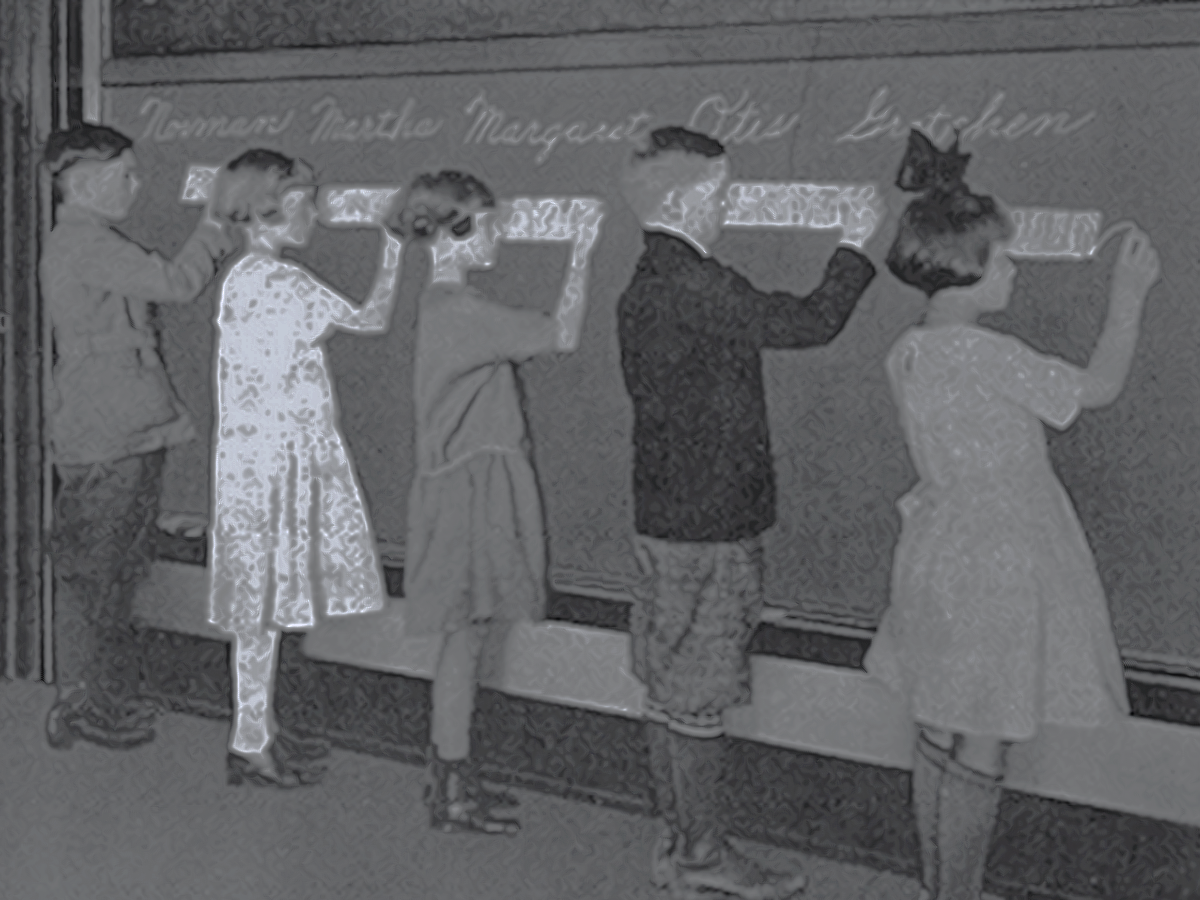 Norman Martha Margaret Otis Gretchen